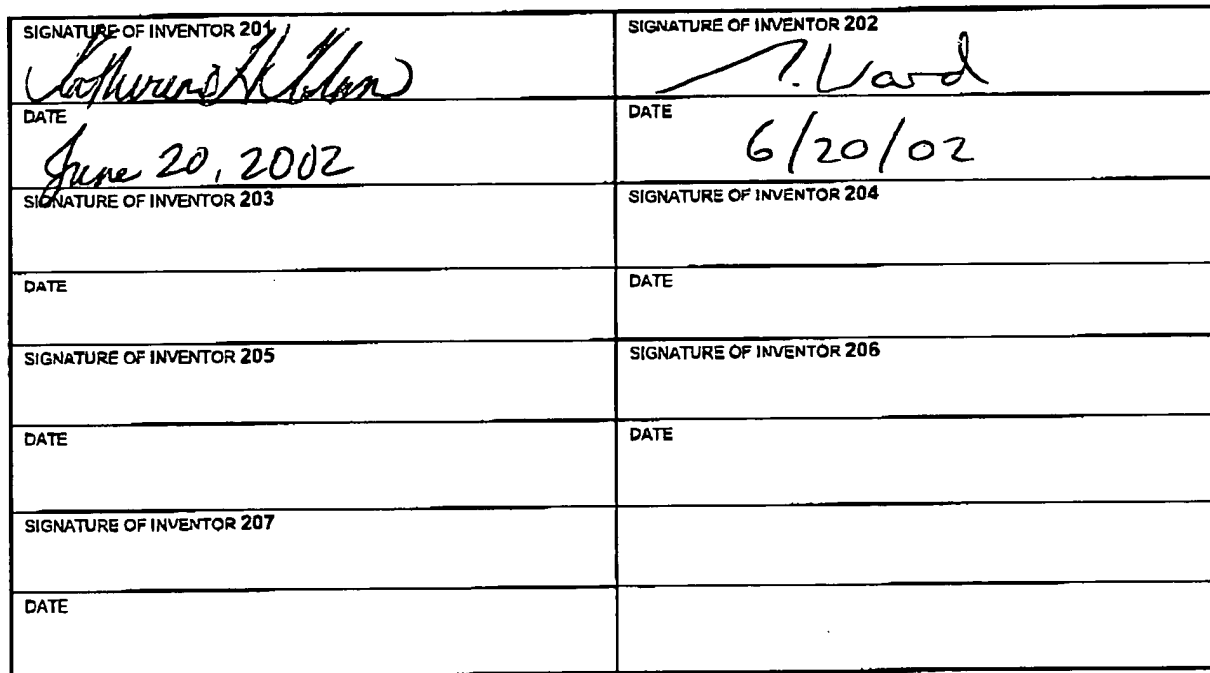 SIGNATURE OF INVENTOR 201
SIGNATURE OF INVENTOR 202
Ward
DATE
June 20, 2002
DATE
6/20/02
SIGNATURE OF INVENTOR 203
SIGNATURE OF INVENTOR 204
DATE
DATE
SIGNATURE OF INVENTOR 205
SIGNATURE OF INVENTOR 206
DATE
DATE
SIGNATURE OF INVENTOR 207
DATE